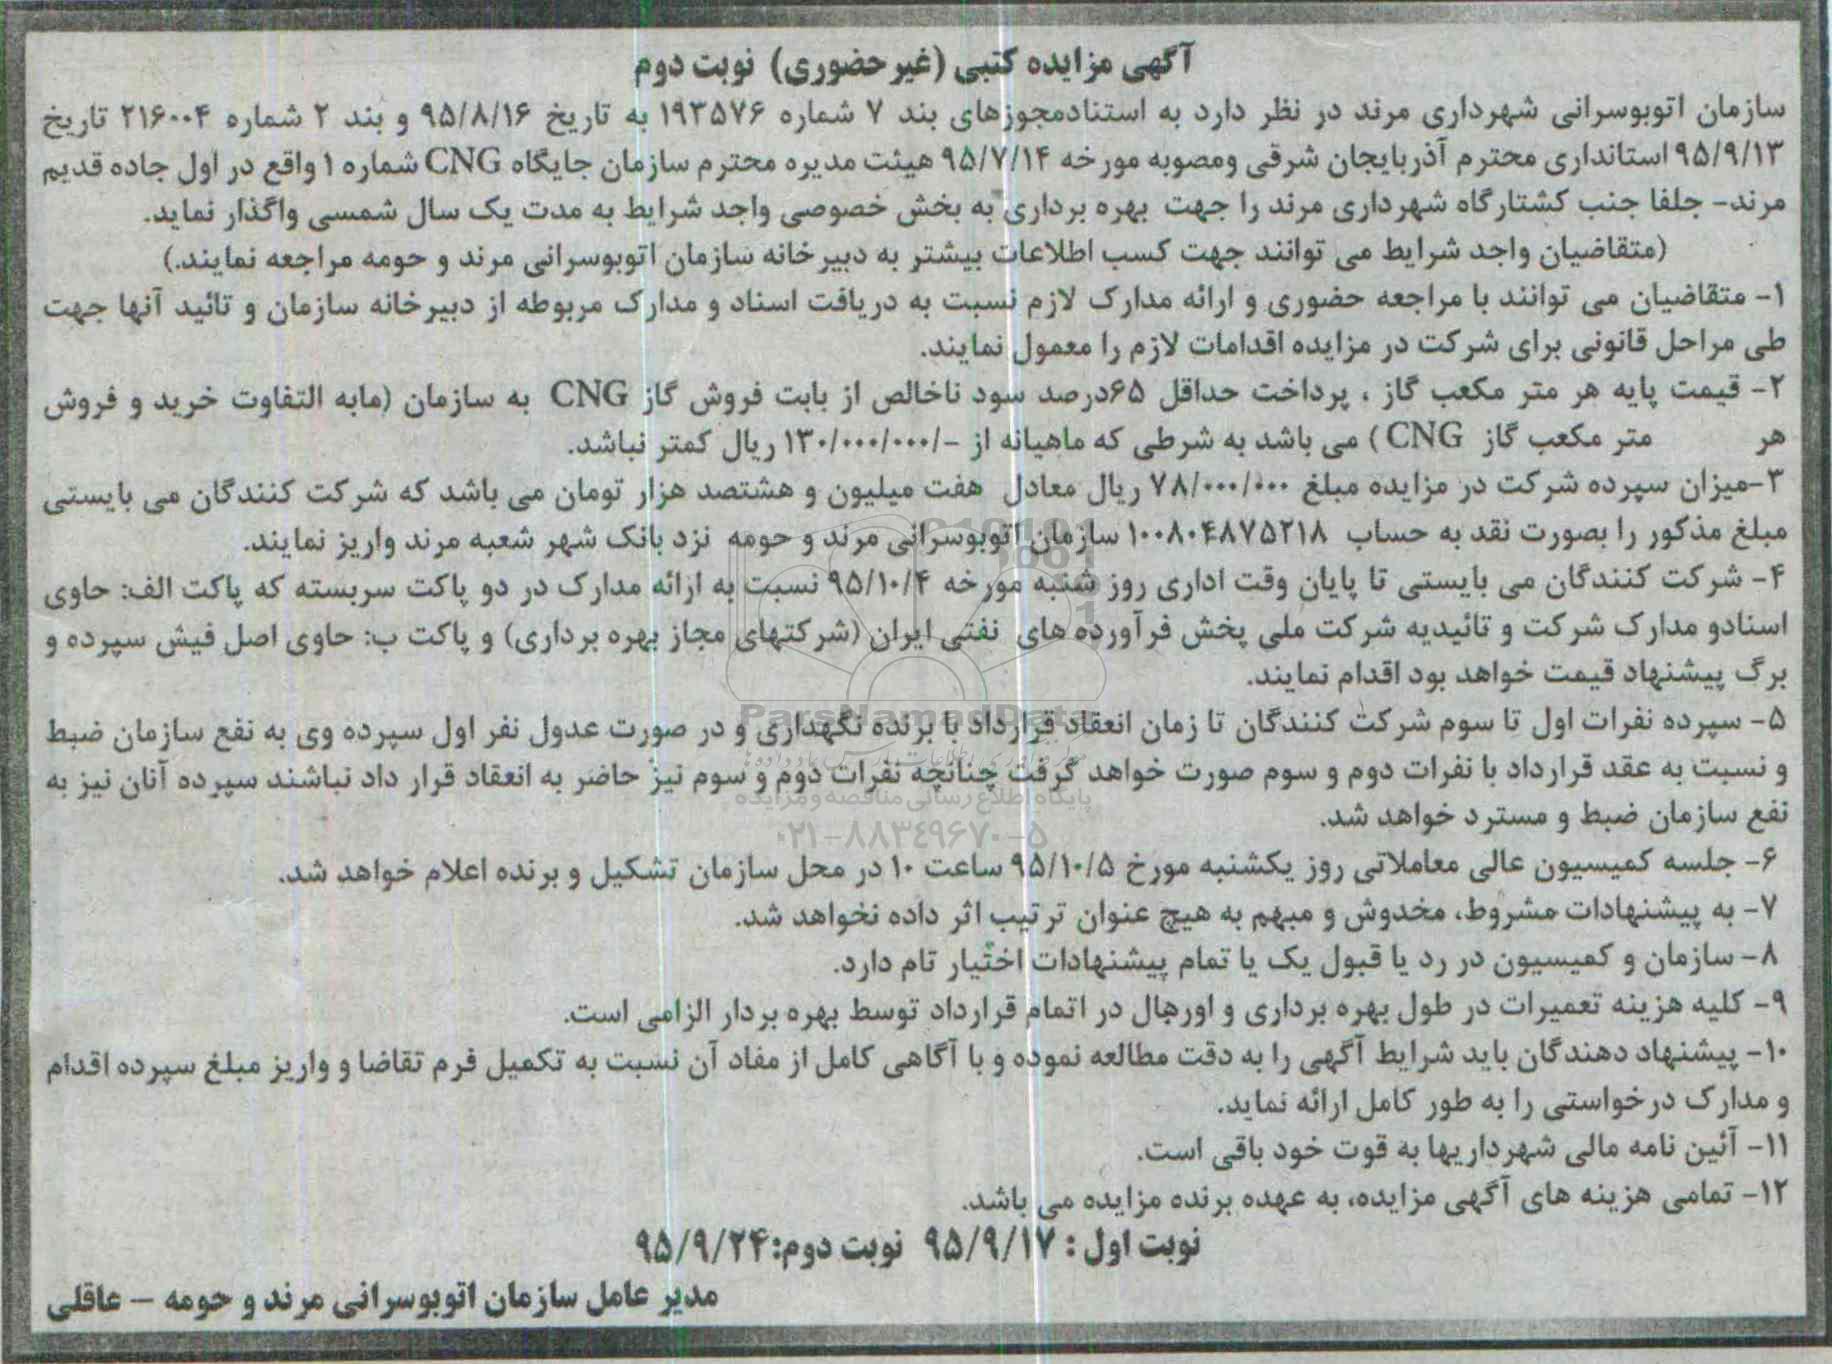 آگهی مزایده کتبی (غیرحضوری) نوبت دوم
سازمان اتوبوسرانی شهرداری مرند در نظر دارد به استنادمجوزهای بند ۷ شماره ۱۹۳۵۷۶ به تاریخ ۹۵/۸/۱۶ و بند ۲ شماره ۲۱۶۰۰۴ تاریخ
۹۵/۹/۱۳ استانداری محترم آذربایجان شرقی ومصوبه مورخه ۹۵/۷/۱۴ هیئت مدیره محترم سازمان جایگاه CNG شماره ۱ واقع در اول جاده قدیم
مرند- جلفا جنب کشتارگاه شهرداری مرند را جهت بهره برداری به بخش خصوصی واجد شرایط به مدت یک سال شمسی واگذار نماید.
(متقاضیان واجد شرایط می توانند جهت کسب اطلاعات بیشتر به دبیرخانه سازمان اتوبوسرانی مرند و حومه مراجعه نمایند.)
۱- متقاضیان می توانند با مراجعه حضوری و ارائه مدارک لازم نسبت به دریافت اسناد و مدارک مربوطه از دبیرخانه سازمان و تائید آنها جهت
طی مراحل قانونی برای شرکت در مزایده اقدامات لازم را معمول نمایند.
۲- قیمت پایه هر متر مکعب گاز ، پرداخت حداقل ۶۵درصد سود ناخالص از بابت فروش گاز CNG به سازمان (مابه التفاوت خرید و فروش
هر متر مکعب گاز CNG ) می باشد به شرطی که ماهیانه از -/۱۳۰/۰۰۰/۰۰۰ ریال کمتر نباشد.
۳-میزان سپرده شرکت در مزایده مبلغ ۷۸/۰۰۰/۰۰۰ ریال معادل هفت میلیون و هشتصد هزار تومان می باشد که شرکت کنندگان می بایستی
مبلغ مذکور را بصورت نقد به حساب ۱۰۰۸۰۴۸۷۵۲۱۸ سازمان اتوبوسرانی مرند و حومه نزد بانک شهر شعبه مرند واریز نمایند.
۴- شرکت کنندگان می بایستی تا پایان وقت اداری روز شنبه مورخه ۹۵/۱۰/۴ نسبت به ارائه مدارک در دو پاکت سربسته که پاکت الف: حاوی
اسنادو مدارک شرکت و تائیدیه شرکت ملی پخش فرآورده های نفتی ایران (شرکتهای مجاز بهره برداری) و پاکت ب: حاوی اصل فیش سپرده و
برگ پیشنهاد قیمت خواهد بود اقدام نمایند.
ParsNamadData
۵- سپرده نفرات اول تا سوم شرکت کنندگان تا زمان انعقاد قرارداد با برنده نگهداری و در صورت عدول نفر اول سپرده وی به نفع سازمان ضبط
و نسبت به عقد قرارداد با نفرات دوم و سوم صورت خواهد گرفت چنانچه نفرات دوم و سوم نیز حاضر به انعقاد قرار داد نباشند سپرده آنان نیز به
پایگاه اطلاع رسانی مناقصه و مزایده
نفع سازمان ضبط و مسترد خواهد شد.
۰۲۱-۸۸۳۴۹۶۷۰-۵
۶- جلسه کمیسیون عالی معاملاتی روز یکشنبه مورخ ۹۵/۱۰/۵ ساعت ۱۰ در محل سازمان تشکیل و برنده اعلام خواهد شد.
۷- به پیشنهادات مشروط، مخدوش و مبهم به هیچ عنوان ترتیب اثر داده نخواهد شد.
۸- سازمان و کمیسیون در رد یا قبول یک یا تمام پیشنهادات اختیار تام دارد.
۹- کلیه هزینه تعمیرات در طول بهره برداری و اورهال در اتمام قرارداد توسط بهره بردار الزامی است.
۱۰- پیشنهاد دهندگان باید شرایط آگهی را به دقت مطالعه نموده و با آگاهی کامل از مفاد آن نسبت به تکمیل فرم تقاضا و واریز مبلغ سپرده اقدام
و مدارک درخواستی را به طور کامل ارائه نماید.
۱۱- آئین نامه مالی شهرداریها به قوت خود باقی است.
۱۲- تمامی هزینه های آگهی مزایده، به عهده برنده مزایده می باشد.
نوبت اول : ۹۵/۹/۱۷ نوبت دوم:۹۵/۹/۲۴
مدیر عامل سازمان اتوبوسرانی مرند و حومه – عاقلی